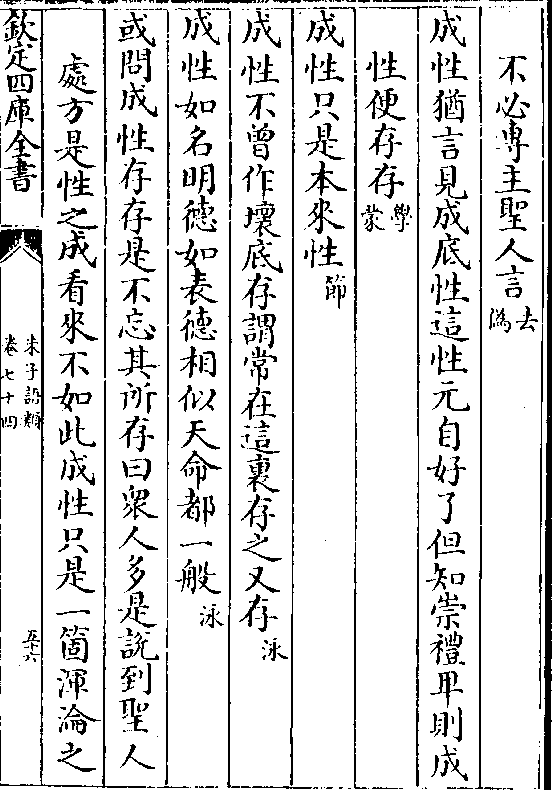 不必專主聖人言去偽
成性猶言見成底性這性元自好了但知崇禮卑則成
性便存存學蒙
成性只是本來性節
成性不曾作壞底存謂常在這裏存之又存泳
成性如名明德如表德相似天命都一般泳
或問成性存存是不忘其所存曰衆人多是說到聖人
處方是性之成看來不如此成性只是一箇渾淪之
欽定四庫全書
朱子語類
卷七十四
五十六